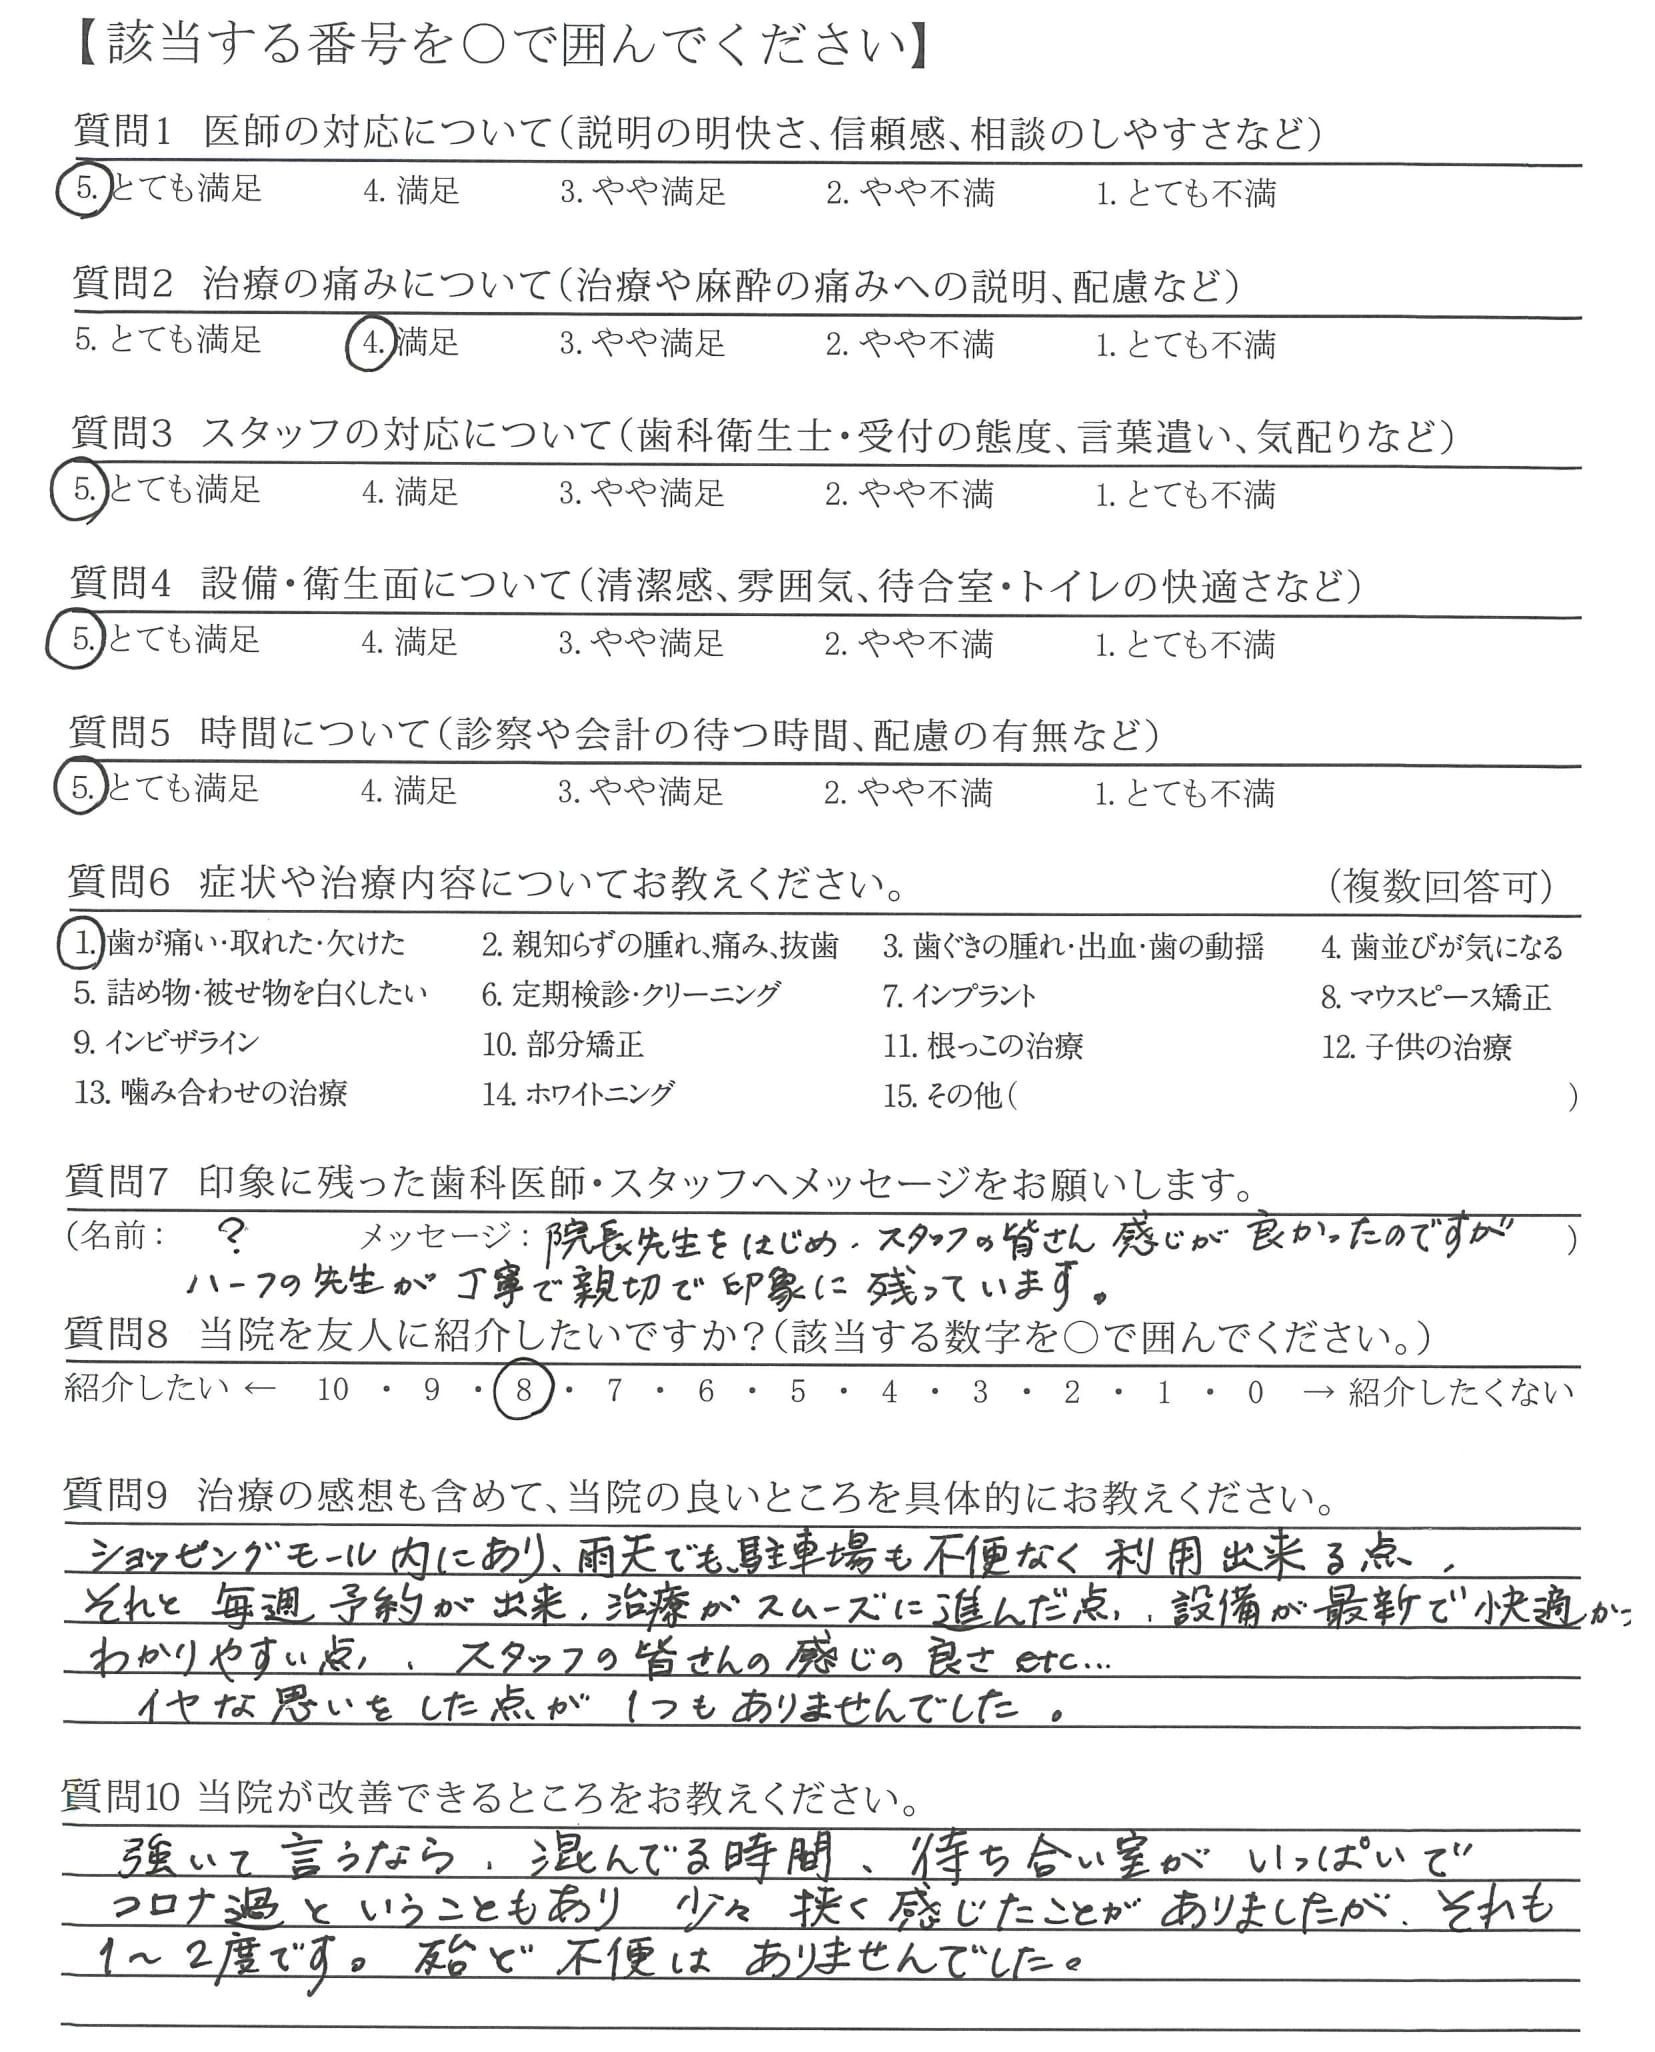 【該当する番号を〇で囲んでください】
質問1 医師の対応について(説明の明快さ、信頼感、相談のしやすさなど)
5. とても満足 4. 満足 3. やや満足 2. やや不満 1. とても不満
質問2 治療の痛みについて(治療や麻酔の痛みへの説明、配慮など)
5. とても満足 4. 満足 3. やや満足 2. やや不満 1. とても不満
質問3 スタッフの対応について(歯科衛生士・受付の態度、言葉遣い、気配りなど)
5. とても満足 4. 満足 3. やや満足 2. やや不満 1. とても不満
質問4 設備・衛生面について(清潔感、雰囲気、待合室・トイレの快適さなど)
5. とても満足 4. 満足 3. やや満足 2. やや不満 1. とても不満
質問5 時間について(診察や会計の待つ時間、配慮の有無など)
5. とても満足 4. 満足 3. やや満足 2. やや不満 1. とても不満
質問6 症状や治療内容についてお教えください。 (複数回答可)
1. 歯が痛い・取れた・欠けた 2. 親知らずの腫れ、痛み、抜歯 3. 歯ぐきの腫れ・出血・歯の動揺 4. 歯並びが気になる
5. 詰め物・被せ物を白くしたい 6. 定期検診・クリーニング 7. インプラント 8. マウスピース矯正
9. インビザライン 10. 部分矯正 11. 根っこの治療 12. 子供の治療
13. 噛み合わせの治療 14. ホワイトニング 15. その他( )
質問7 印象に残った歯科医師・スタッフへメッセージをお願いします。
(名前: ? メッセージ: 院長先生をはじめ、スタッフの皆さん 感じが良かったのですが )
ハーフの先生が丁寧で親切で印象に残っています。
質問8 当院を友人に紹介したいですか?(該当する数字を〇で囲んでください。)
紹介したい ← 10 ・ 9 ・ 8 ・ 7 ・ 6 ・ 5 ・ 4 ・ 3 ・ 2 ・ 1 ・ 0 → 紹介したくない
質問9 治療の感想も含めて、当院の良いところを具体的にお教えください。
ショッピングモール内にあり、雨天でも駐車場も不便なく利用出来る点、
それと毎週予約が出来、治療がスムーズに進んだ点、設備が最新で快適かつ
わかりやすい点、スタッフの皆さんの感じの良さ etc...
イヤな思いをした点が1つもありませんでした。
質問10 当院が改善できるところをお教えください。
強いて言うなら、混んでる時間、待ち合い室がいっぱいで
コロナ過ということもあり 少々狭く感じたことがありましたが、それも
1～2度です。殆ど不便はありませんでした。